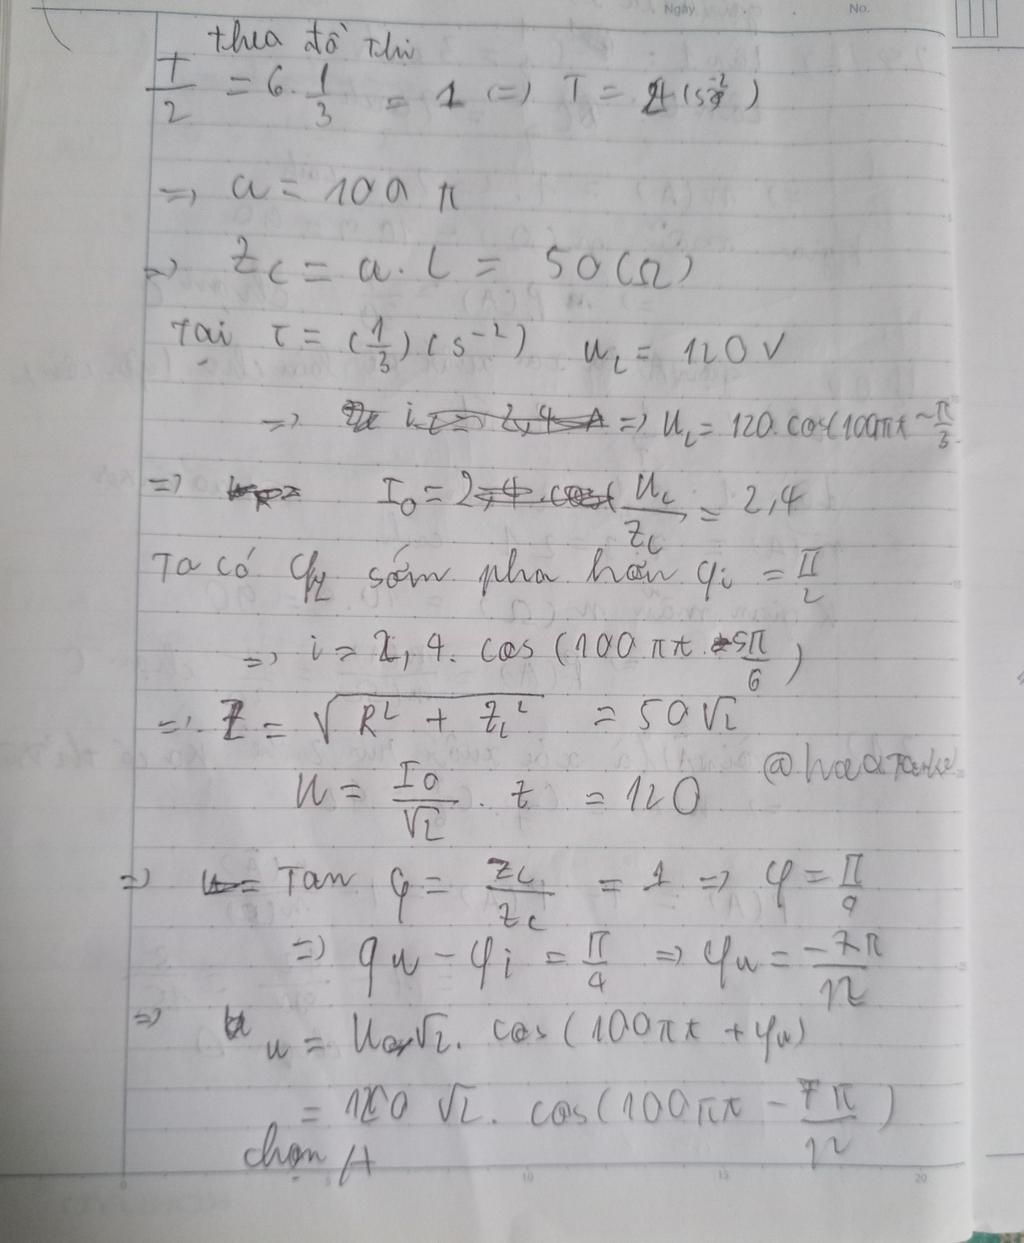 Ngày No.
theo đồ thị
T/2 = 6. 1/3 = 1 (=) T = 2 (s⁻²)
=> ω = 100 π
=> Z_L = ω. L = 50 (Ω)
Tại t = (1/3) (s⁻²) u_L = 120 V
=> => u_L = 120. cos(100πt - π/3
=> I₀ = u_L/Z_L = 2,4
Ta có φ_L sớm pha hơn φi = π/2
=> i = 2,4. cos (100 πt - 5π/6)
=> Z = √(R² + Z_L²) = 50√2
U = I₀/√2 . Z = 120
=> Tan φ = Z_L/Z_C = 1 => φ = π/4
=> φu - φi = π/4 => φu = -7π/12
=> u = U√2. cos (100πt + φu)
= 120 √2. cos(100πt - 7π/12)
chọn A
10 15 20